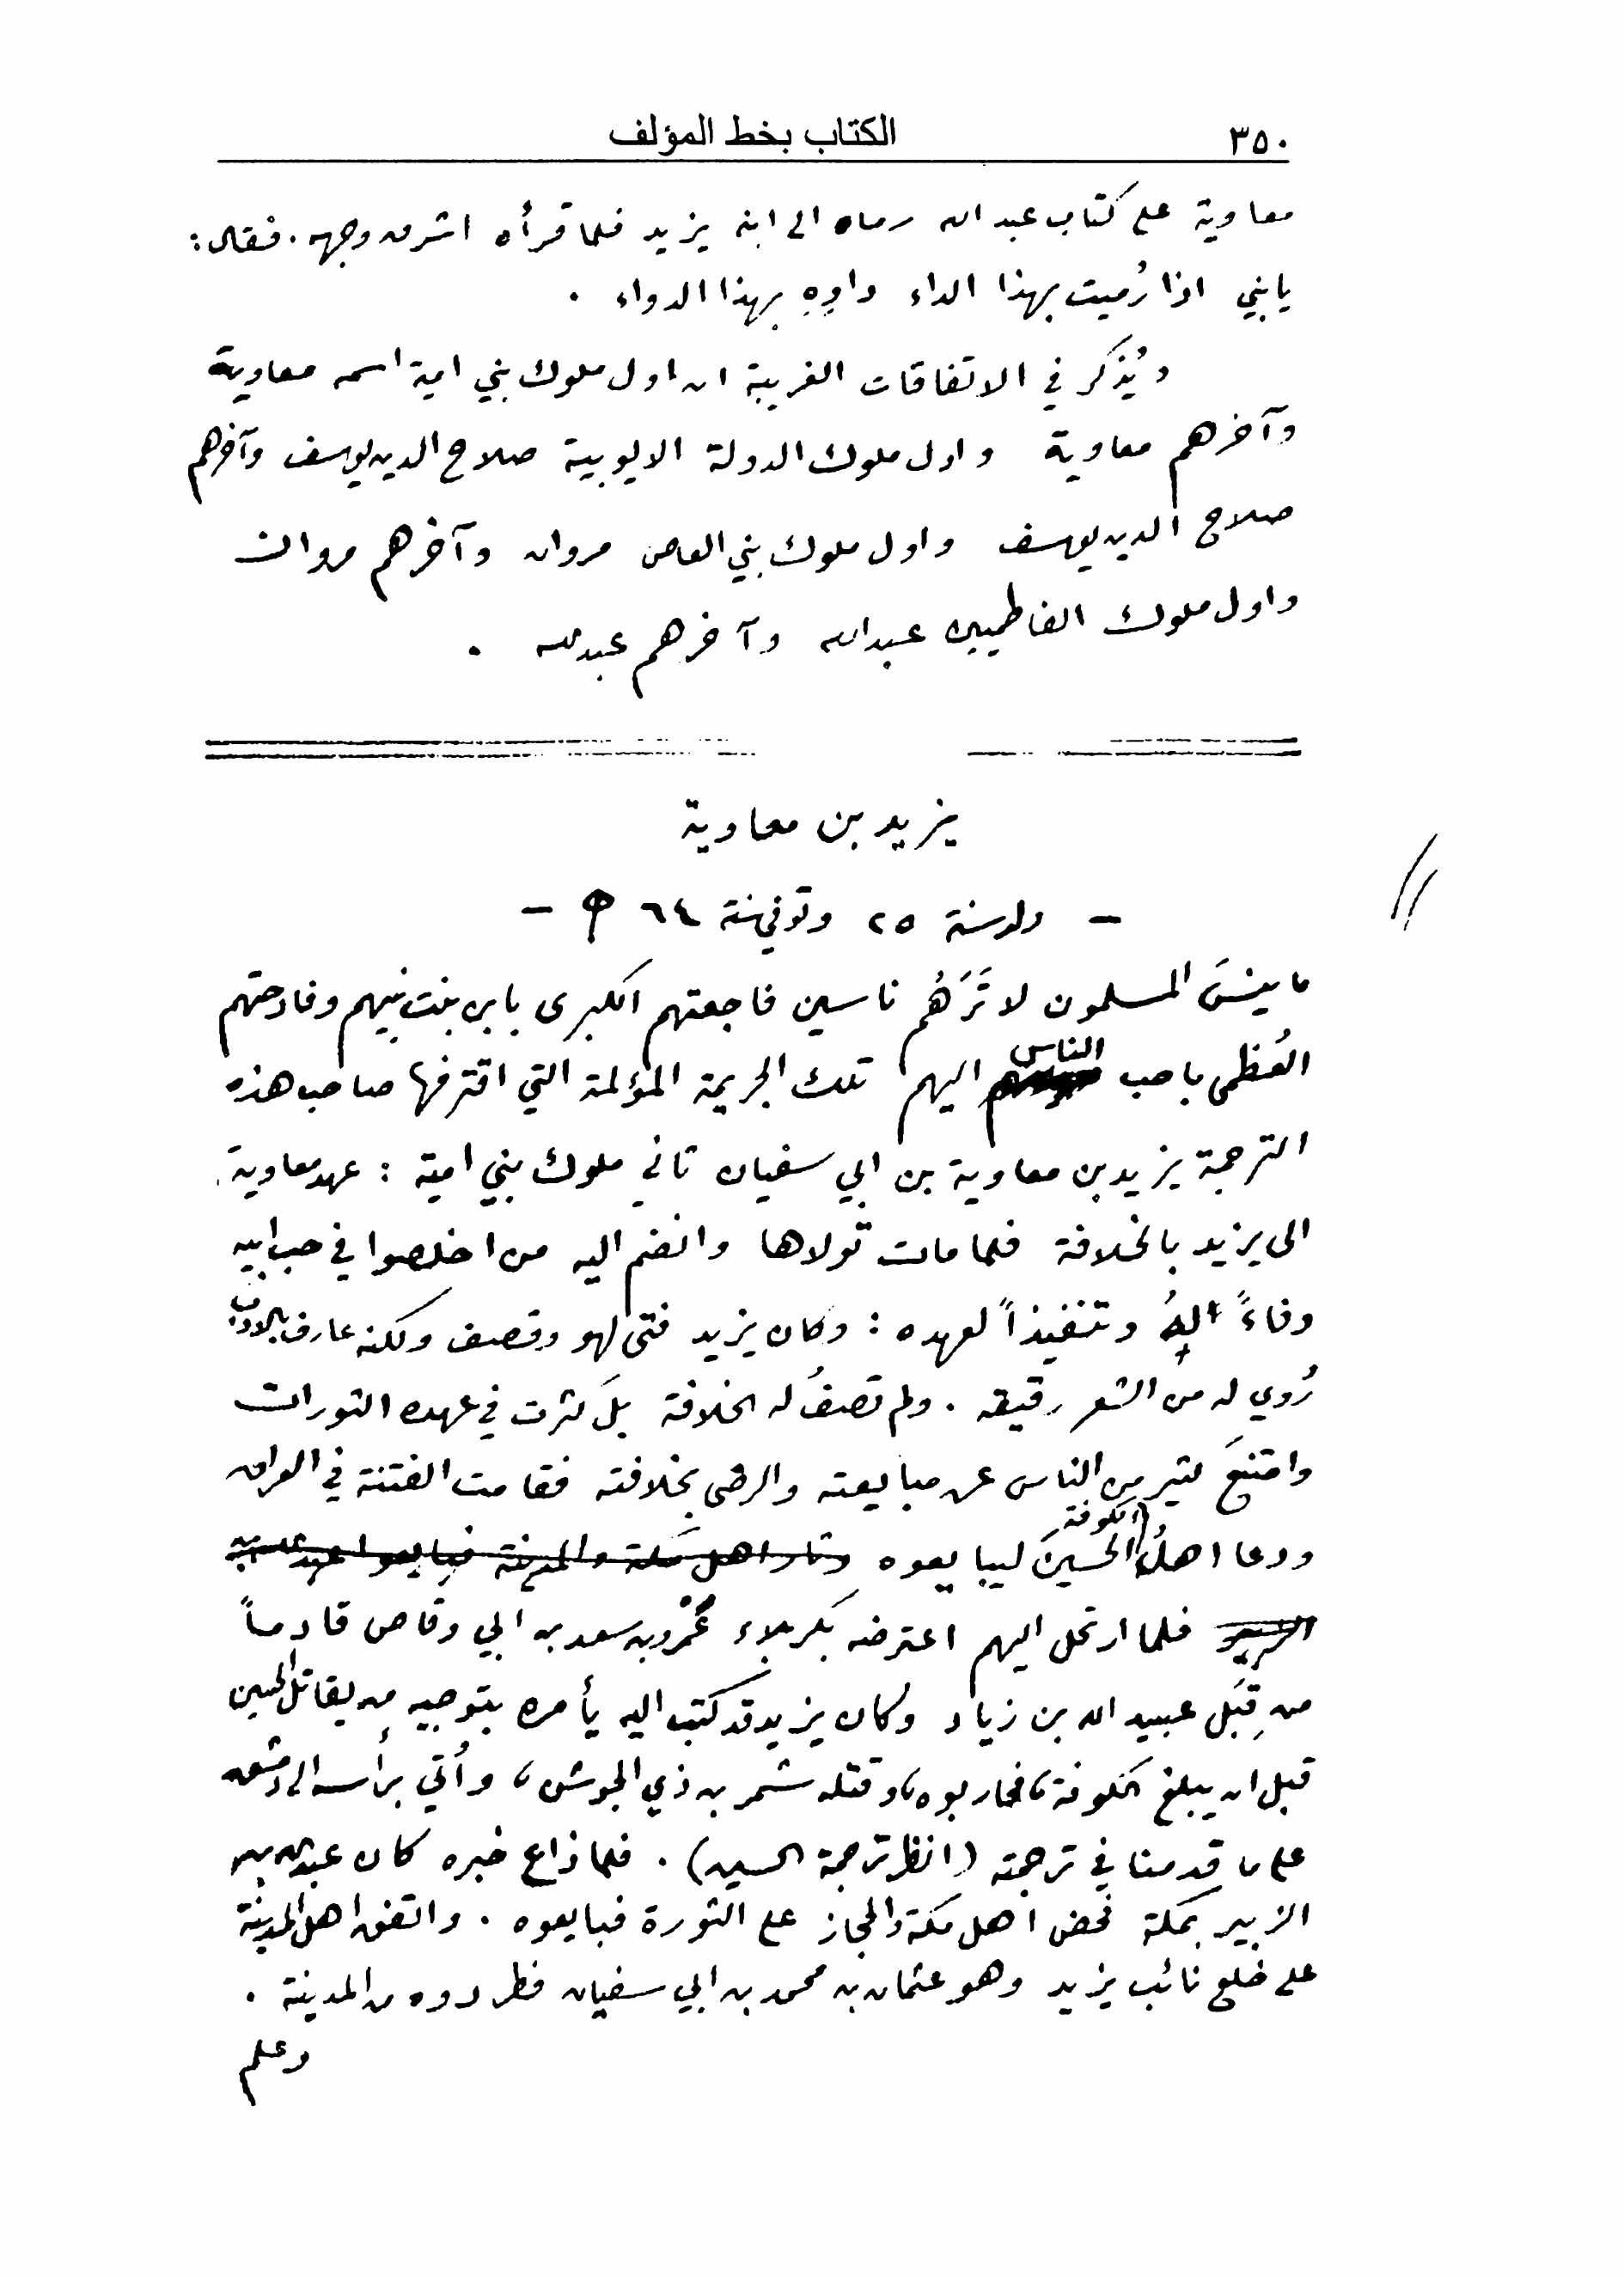 ٣٥٠ الكتاب بخط المؤلف
معاوية على كتاب عبد الله رماه الى ابنه يزيد فلما قرأه اشرق وجهه . فقال :
يابني اذا رُميت بهذا الداء داوِهِ بهذا الدواء .
ويُذكر في الاتفاقات الغريبة ان اول ملوك بني امية اسمه معاوية
وآخرهم معاوية واول ملوك الدولة الايوبية صلاح الدين يوسف وآخرهم
صلاح الدين يوسف واول ملوك بني العاص مروان وآخرهم مروان
واول ملوك الفاطميين عبد الله وآخرهم عبد الله .
يزيد بن معاوية
– ولد سنة ٢٥ وتوفي سنة ٦٤ هـ –
ما ينسَ المسلمون لا تَرَهُم ناسين فاجعتهم الكبرى بابن بنت نبيهم وفادحتهم
العُظمى باحب الناس اليهم تلك الجريمة المؤلمة التي اقترفها صاحب هذه
الترجمة يزيد بن معاوية بن ابي سفيان ثاني ملوك بني امية : عهد معاوية
الى يزيد بالخلافة فلما مات تولاها وانضم اليه من اخلصوا في حب ابيه
وفاءً لهُ وتنفيذاً لعهده : وكان يزيد فتى لهو وقصف ولكنه عارف بالادب
رُوي له من الشعر رقيقه . ولم تصفُ له الخلافة بل كثرت في عهده الثورات
وامتنعَ كثير من الناس عن مبايعته والرضى بخلافته فقامت الفتنة في العراق
ودعا اهلُ الكوفة الحسينَ ليبايعوه وثار اهل مكة والمدينة فبايعوا عبد الله بن
الزبير فلما ارتحل اليهم اعترضه بكربلاء عَمْرو بن سعد بن ابي وقاص قادماً
من قِبَل عبيد الله بن زياد وكان يزيد قد كتب اليه يأمره بتوجيه من يقاتل الحسين
قبل ان يبلغ الكوفة ، فحاربوه ، وقتله شمر بن ذي الجوشن ، وأُتي برأسه الى دمشق
على ما قدمنا في ترجمته (انظر ترجمة الحسين) . فلما ذاع خبره كان عبد الله بن
الزبير بمكة فحض اهل مكة والحجاز على الثورة فبايعوه . واتفق اهل المدينة
على خلع نائب يزيد وهو عثمان بن محمد بن ابي سفيان فطردوه من المدينة .
وعلم